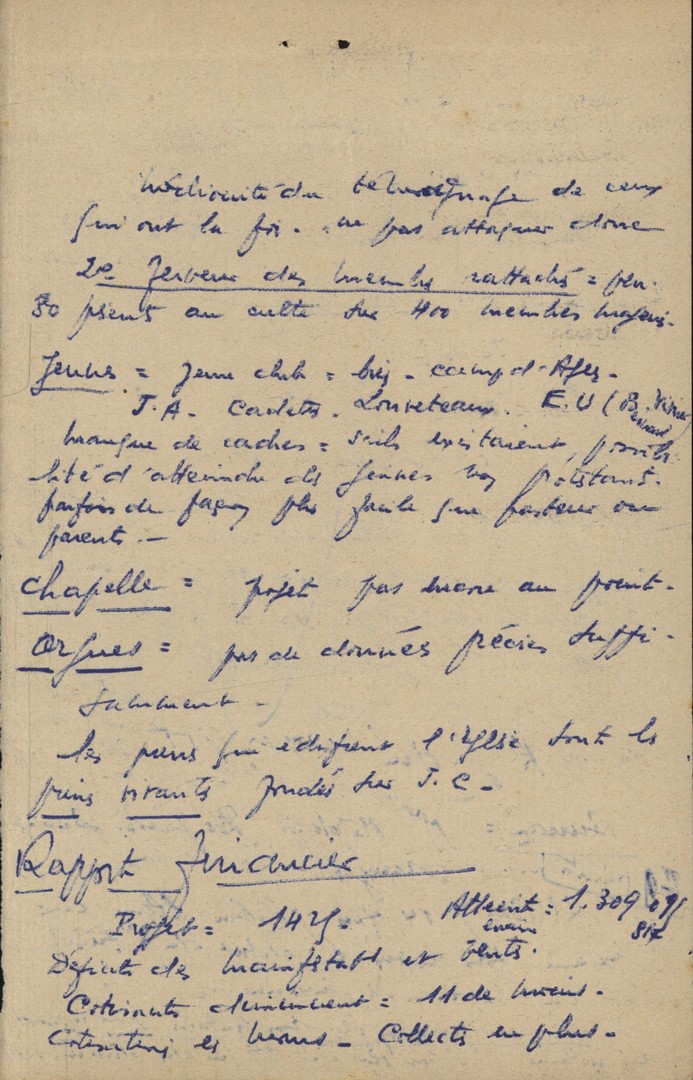 Médiocrité du témoignage de ceux
qui ont la foi. ne pas attaquer donc
2e Ferveur des membres rattachés = peu.
30 présents au culte sur 400 membres
Jeunes = Jeune club = camp d'
J.A. Cadets. Louveteaux. E.U (Bernard
manque de cadres = s'ils existaient, possibi
lité d'atteindre des jeunes non protestants.
parfois de façon plus facile que pasteur ou
parents. —
Chapelle = projet pas encore au point.
Orgues = pas de données précises suffi-
samment.
les pierres qui édifient l'Eglise sont les
pierres vivantes fondés sur J.C.
Rapport financier
Projet = 1425. Atteint = 1.309 095
Déficits des et vents.
Cotisants diminuent = 11 de moins.
Cotisations en moins. Collectes en plus.